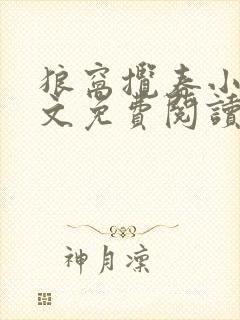 狼窩攬春小
文免費閱讀
神月凜